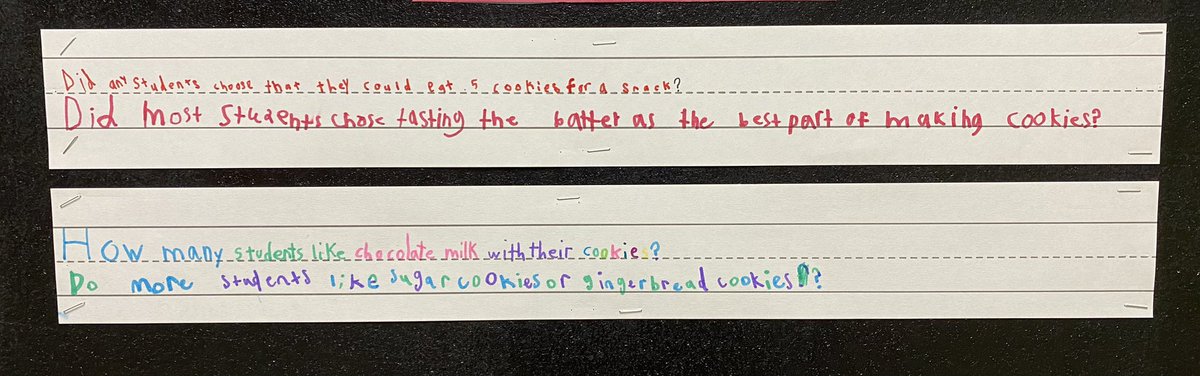 Did any students choose that they could eat 5 cookies for a snack?
Did most students chose tasting the batter as the best part of making cookies?
How many students like chocolate milk with their cookies?
Do more students like sugar cookies or gingerbread cookies?